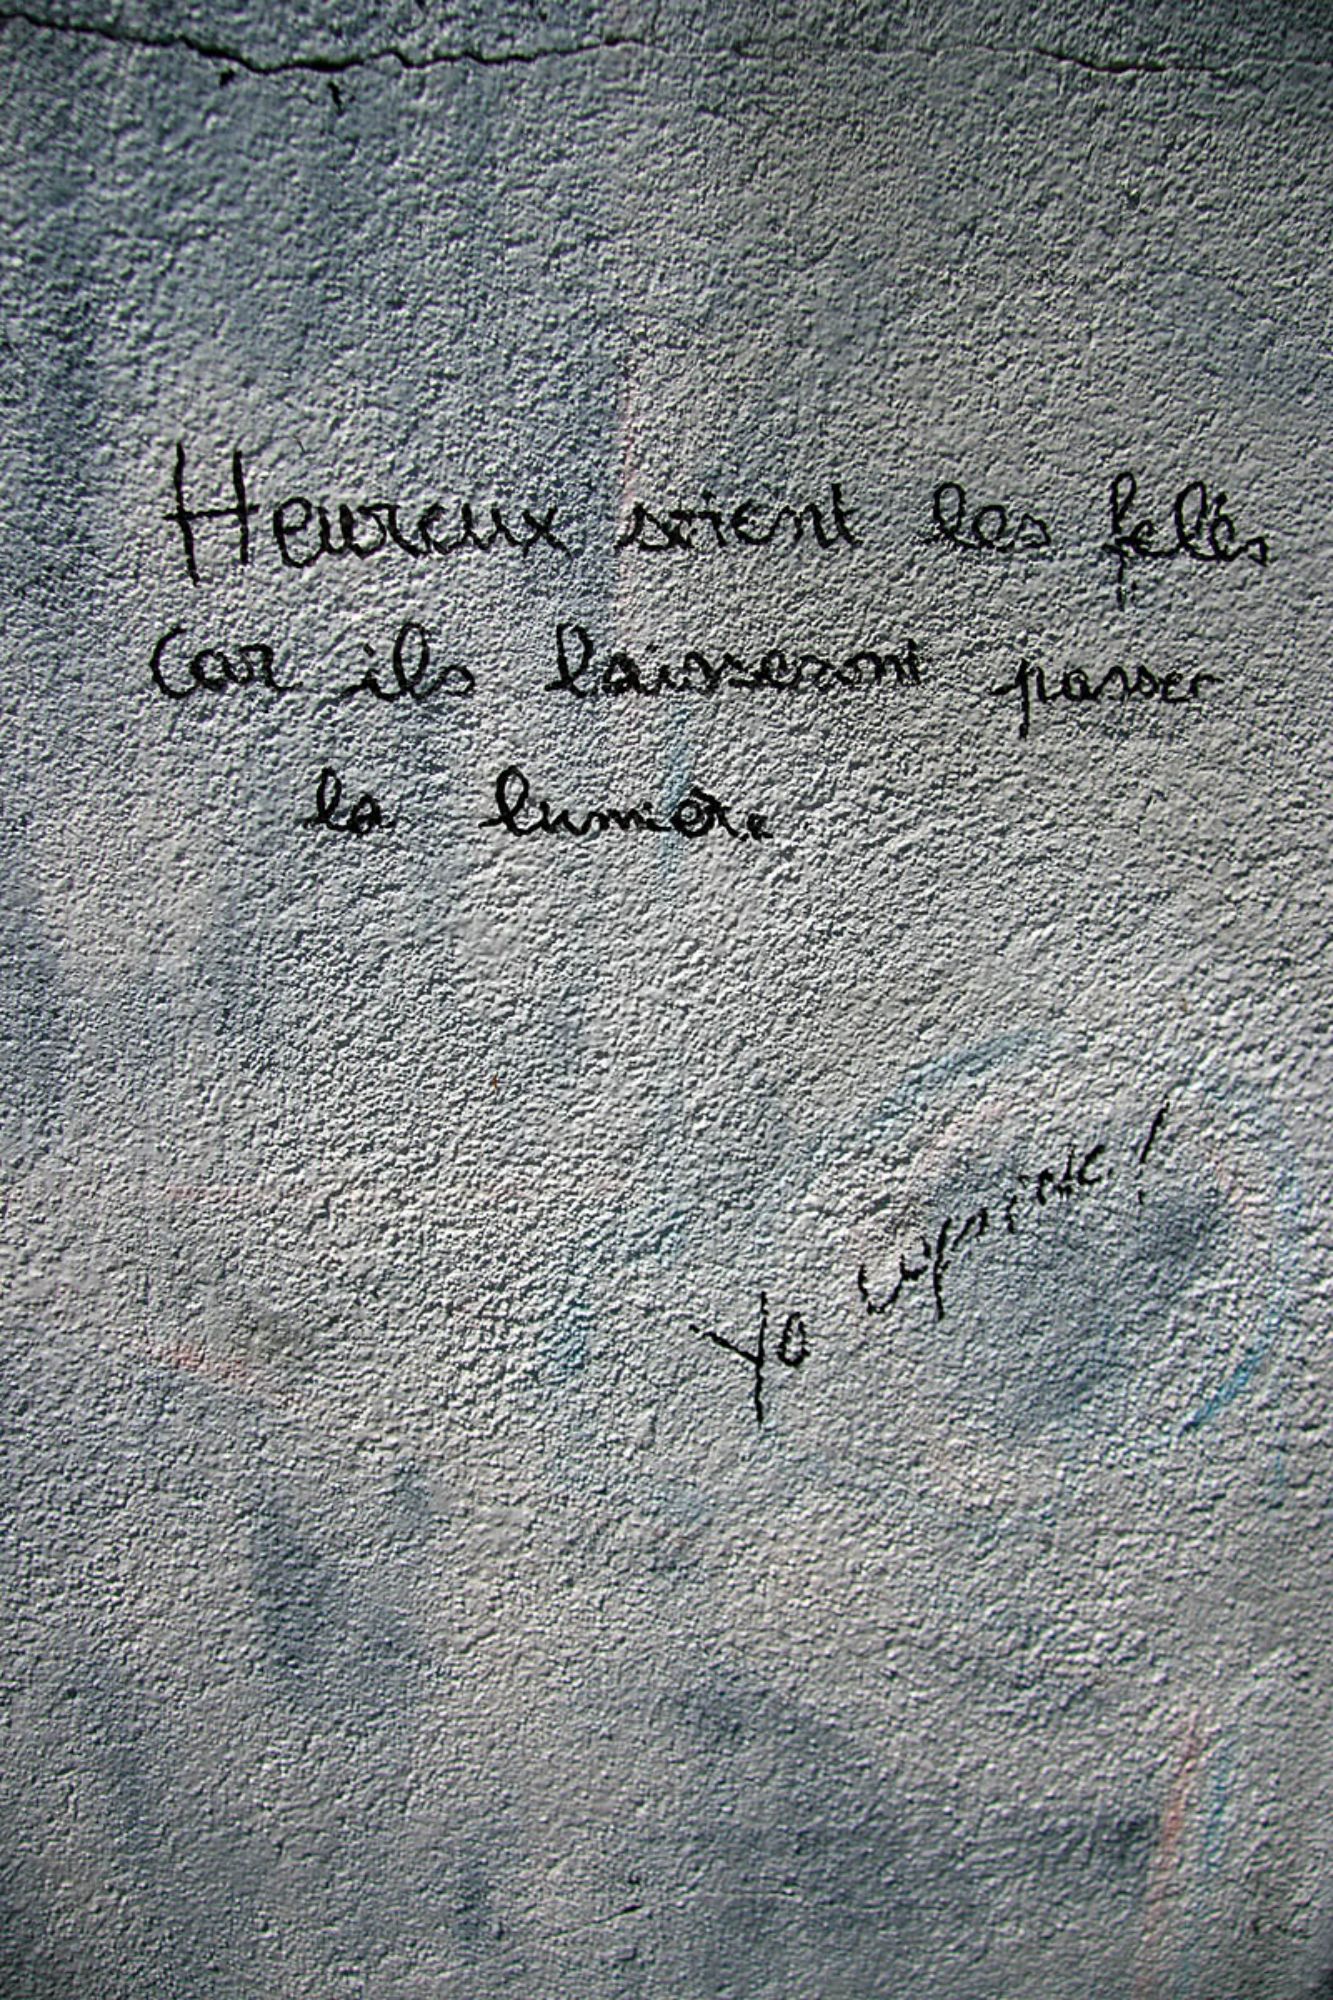 Heureux soient les felés
Car ils laisseront passer
la lumière
Yo